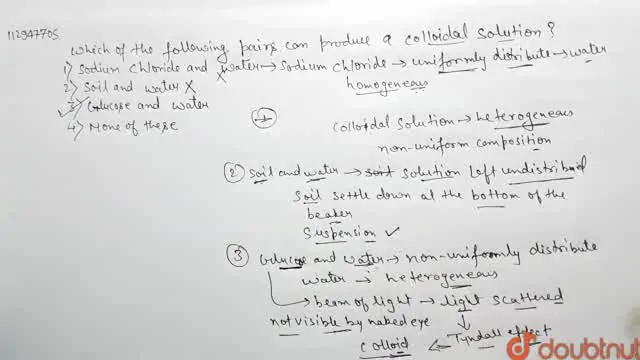 112947705
Which of the following pairs can produce a colloidal solution?
1) Sodium chloride and water → Sodium chloride → uniformly distribute → water
homogeneous
2) Soil and water X
3) Glucose and water
4) None of these
colloidal solution → heterogeneous
non-uniform composition
② Soil and water → solution left undistribuied
Soil settle down at the bottom of the
beaker
Suspension ✓
③ Glucose and water → non-uniformly distribute
water → heterogeneous
→ beam of light → light scattered
not visible by naked eye
colloid ← Tyndall effect
doubtnut